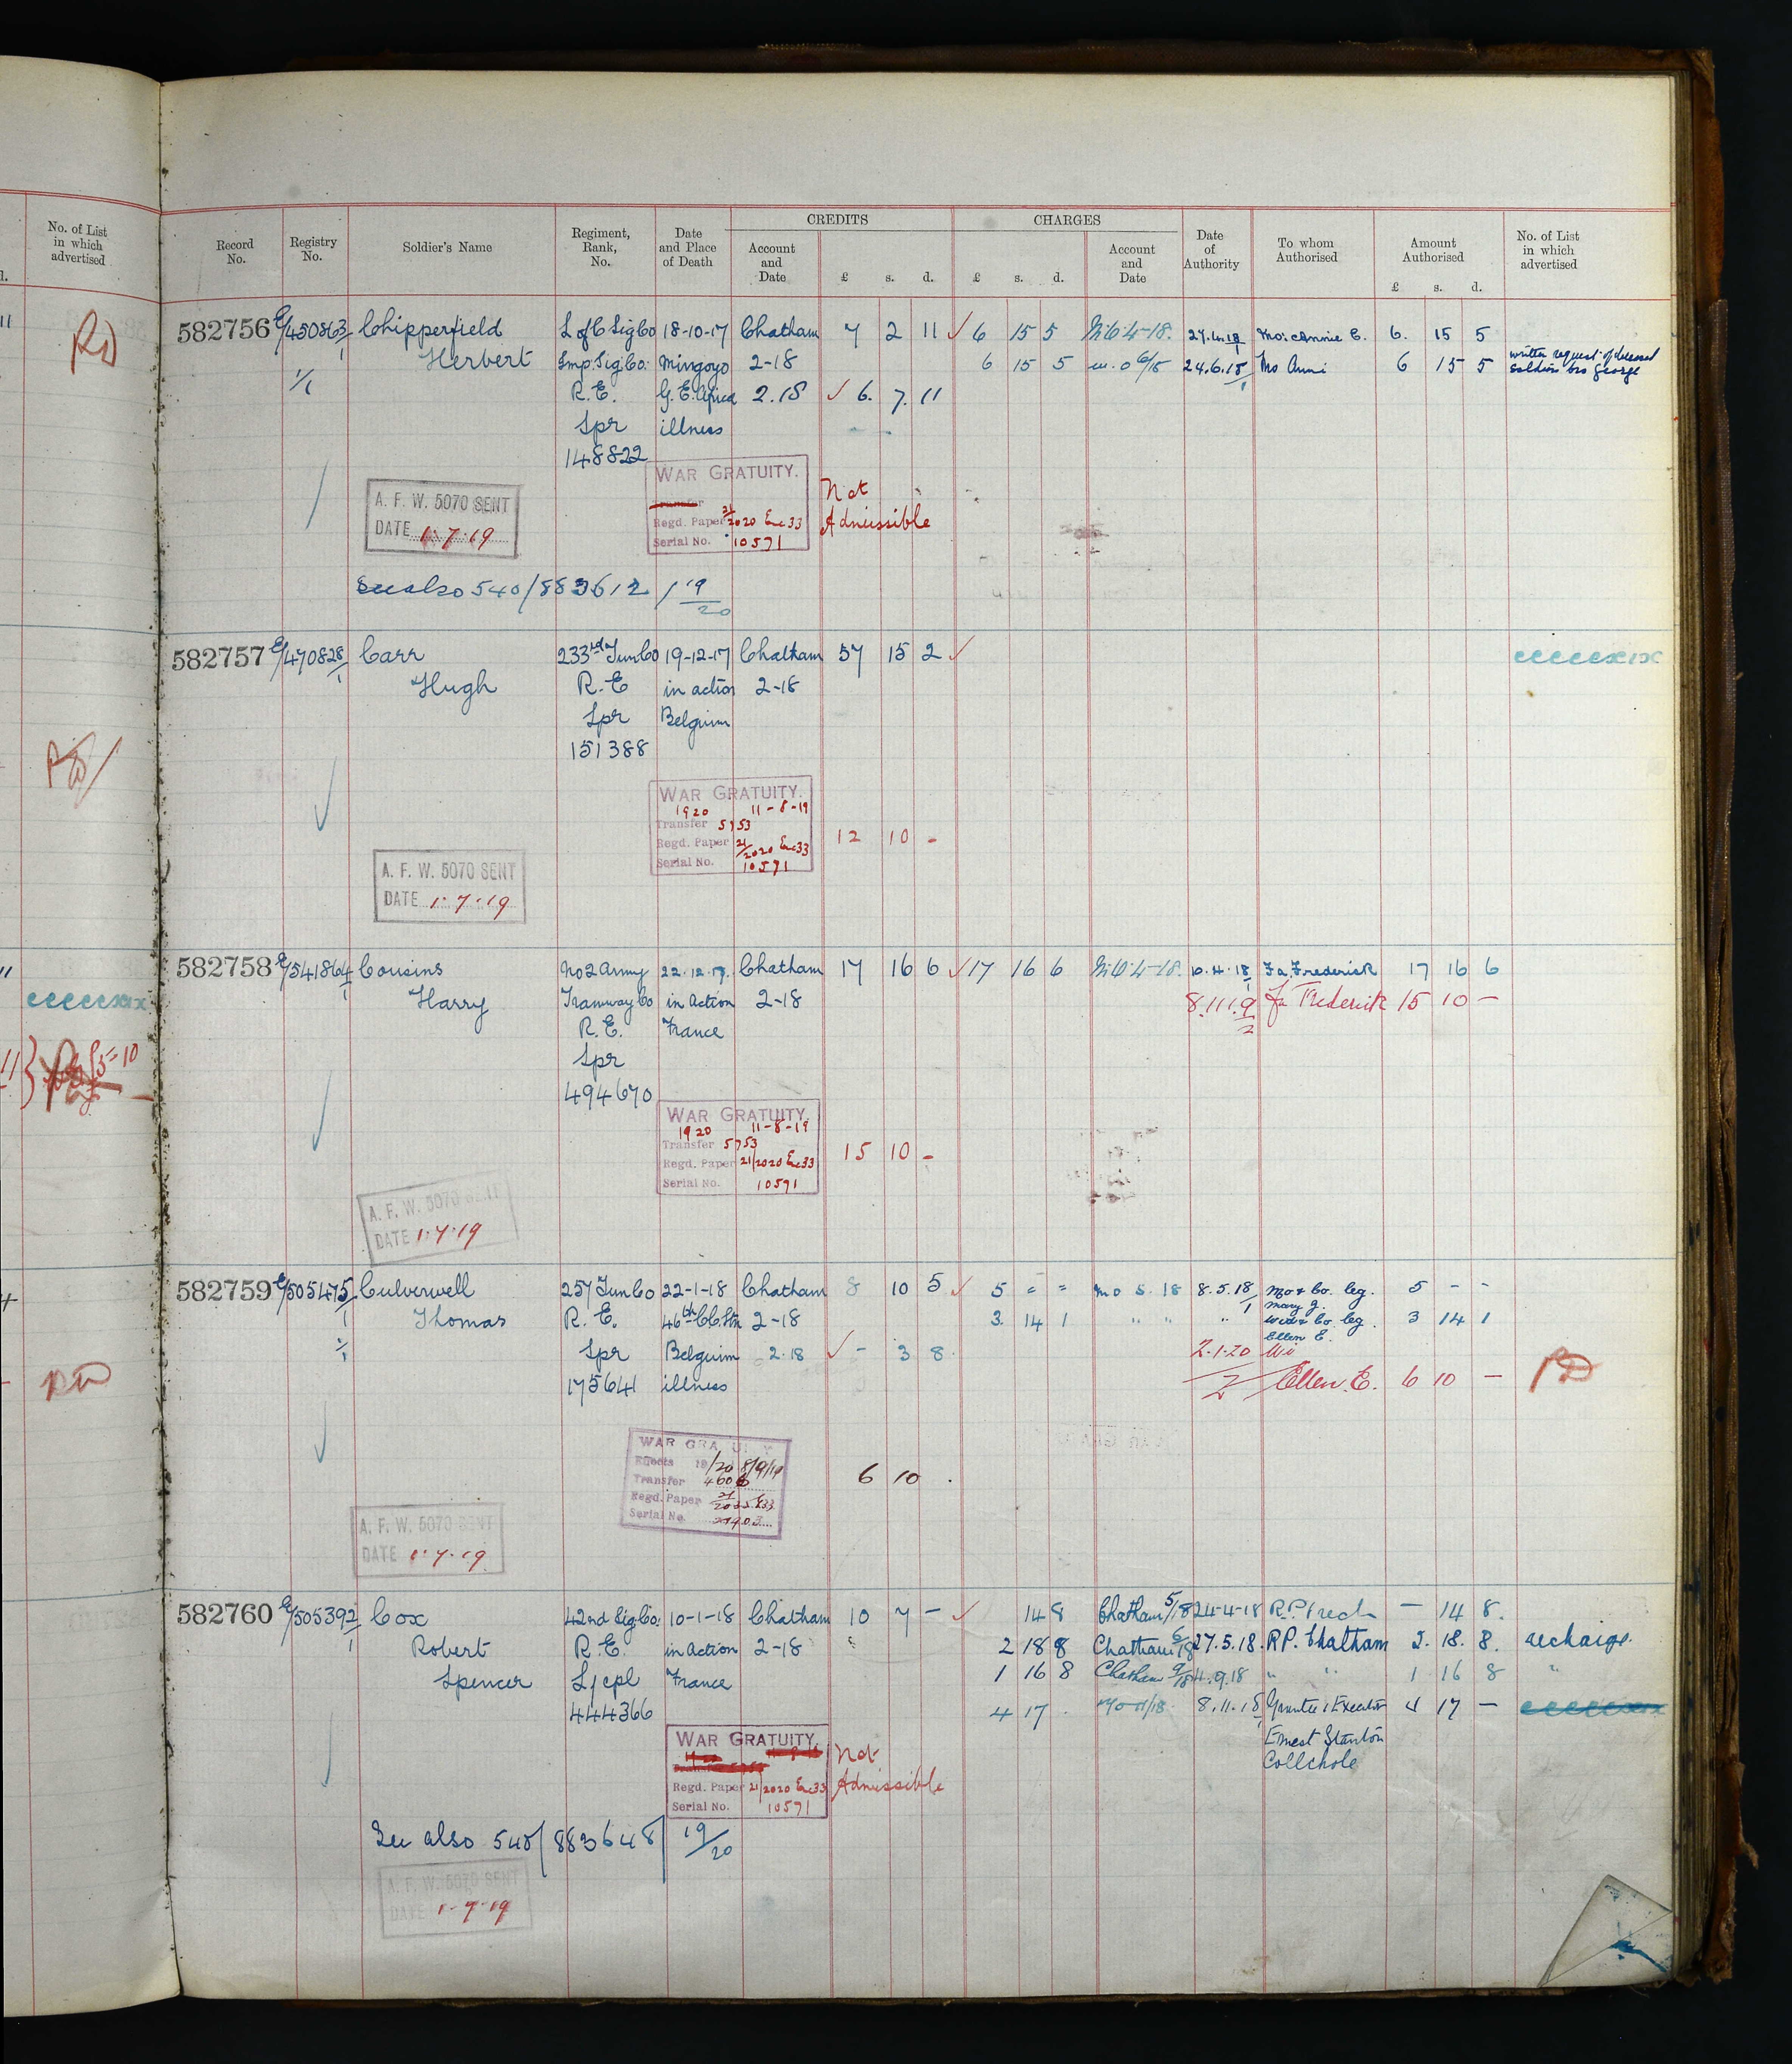 No. of List
in which
advertised
RD
Record No.
Registry No.
Soldier's Name
Regiment, Rank, No.
Date and Place of Death
CREDITS
Account and Date
£ s. d.
CHARGES
£ s. d.
Account and Date
Date of Authority
To whom Authorised
Amount Authorised
£ s. d.
No. of List in which advertised
582756 E/450863/1 Chipperfield L of C Sig Co 18-10-17 Chatham 7 2 11 6 15 5 27.4.18/1 Mo: Annie E. 6. 15 5
Herbert Imp. Sig. Co. Mingoyo 2-18 6 15 5 24.6.18/1 Mo Anni 6 15 5 written request of deceased
soldier bro George
1/1 R.E. G.E. Africa 2.18 6. 7. 11
Spr illness
148822
WAR GRATUITY.
Transfer
Regd. Paper 21/2020 Enc 33
Serial No. 10591
Not
Admissible
A. F. W. 5070 SENT
DATE 1.7.19
See also 540/883612/19/20
582757 E/470828/1 Carr 233rd Tun Co 19-12-17 Chatham 57 15 2
Hugh R.E in action 2-18
Spr Belgium
151388
WAR GRATUITY.
1920 11-8-19
Transfer 5753
Regd. Paper 21/2020 Enc 33
Serial No. 10591
12 10 -
A. F. W. 5070 SENT
DATE 1.7.19
582758 E/541864/1 Cousins No 2 Army 22.12.17. Chatham 17 16 6 17 16 6 10.4.18/1 Fa. Frederick 17 16 6
Harry Tramway Co in action 2-18 8.11.19/2 Fa Frederick 15 10 -
R.E. France
Spr
494670
WAR GRATUITY.
1920 11-8-19
Transfer 5753
Regd. Paper 21/2020 Enc 33
Serial No. 10591
15 10 -
A. F. W. 5070 SENT
DATE 1.7.19
582759 E/505475/1 Culverwell 257 Tun Co 22-1-18 Chatham 8 10 5 5 - - Mo 5. 18 8.5.18/1 Mo & Co. leg. 5 - -
Mary J.
Thomas R.E. 46th C.C. Stn 2-18 3. 14 1 " " " Wid & Co leg. 3 14 1
Ellen E.
1/1 Spr Belguim 2.18 - 3 8. 2.1.20/2 Wi
175641 illness Ellen. E. 6 10 - RD
WAR GRATUITY
Effects 19/20 8/9/19
Transfer 4606
Regd. Paper
Serial No.
6 10 .
A. F. W. 5070 SENT
DATE 1.7.19
582760 E/505392/1 Cox 42nd Sig Co: 10-1-18 Chatham 10 7 - 14 8 Chatham 5/18 24-4-18 R.P. - 14 8.
Robert R.E. in action 2-18 2 18 8 Chatham 6/18 27.5.18. RP. Chatham 2. 18. 8. recharge.
Spencer L/cpl France 1 16 8 Chatham 9/18 4.9.18 " " 1 16 8 "
444366 4 17 . Mo 11/18. 8.11.18/1 Grantee & Executor 4 17 -
Ernest Stanton
WAR GRATUITY.
Regd. Paper 21/2020 Enc 33
Serial No. 10591
Not
Admissible
See also 540/883648/19/20
A. F. W. 5070 SENT
DATE 1-7-19